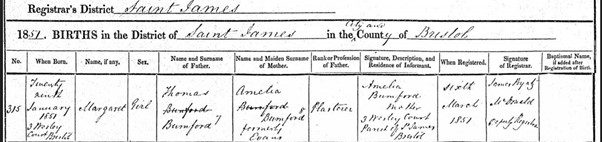 Registrar's District Saint James
1851. BIRTHS in the District of Saint James in the City and County of Bristol
No. When Born. Name, if any. Sex. Name and Surname of Father. Name and Maiden Surname of Mother. Rank or Profession of Father. Signature, Description, and Residence of Informant. When Registered. Signature of Registrar. Baptismal Name, if added after Registration of Birth.
Twenty Thomas Amelia Amelia Sixth
ninth Bumford Bumford Bumford March
315 January Margaret Girl Bumford Bumford Plasterer Mother 1851 Deputy Registrar
1851 formerly 3 Wesley Court
3 Wesley Evans Parish of St James
Court Bristol Bristol